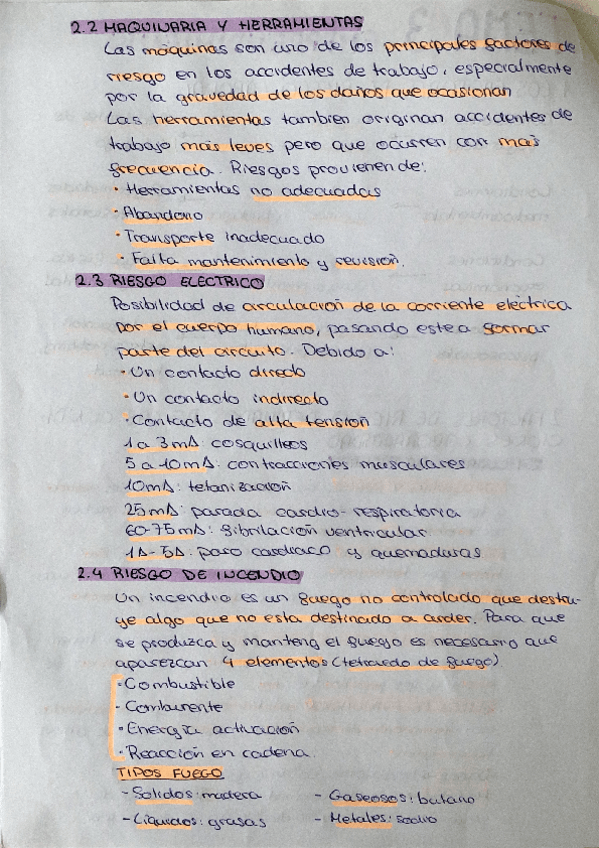 2.2 MAQUINARIA Y HERRAMIENTAS
Las máquinas son uno de los principales factores de
riesgo en los accidentes de trabajo, especialmente
por la gravedad de los daños que ocasionan
Las herramientas tambien originan accidentes de
trabajo más leves pero que ocurren con mas
frecuencia. Riesgos provienen de:
· Herramientas no adecuadas
· Abandono
· Transporte inadecuado
· Falta mantenimiento y revisión.
2.3 RIESGO ELECTRICO
Posibilidad de circulación de la corriente eléctrica
por el cuerpo humano, pasando este a formar
parte del circuito. Debido a:
· Un contacto directo
· Un contacto indirecto
· Contacto de alta tensión
1 a 3mA: cosquilleos
5 a 10mA: contracciones musculares
10mA: tetanización
25mA: parada cardio-respiratoria
60-75mA: fibrilación ventricular
1A-5A: paro cardiaco y quemaduras
2.4 RIESGO DE INCENDIO
Un incendio es un fuego no controlado que destru-
ye algo que no esta destinado a arder. Para que
se produzca y manteng el fuego es necesario que
aparezcan 4 elementos (tetraedo de fuego)
· Combustible
· Comburente
· Energía activación
· Reacción en cadena.
TIPOS FUEGO
- Solidos: madera - Gaseosos: butano
- Líquidos: grasas - Metales: sodio